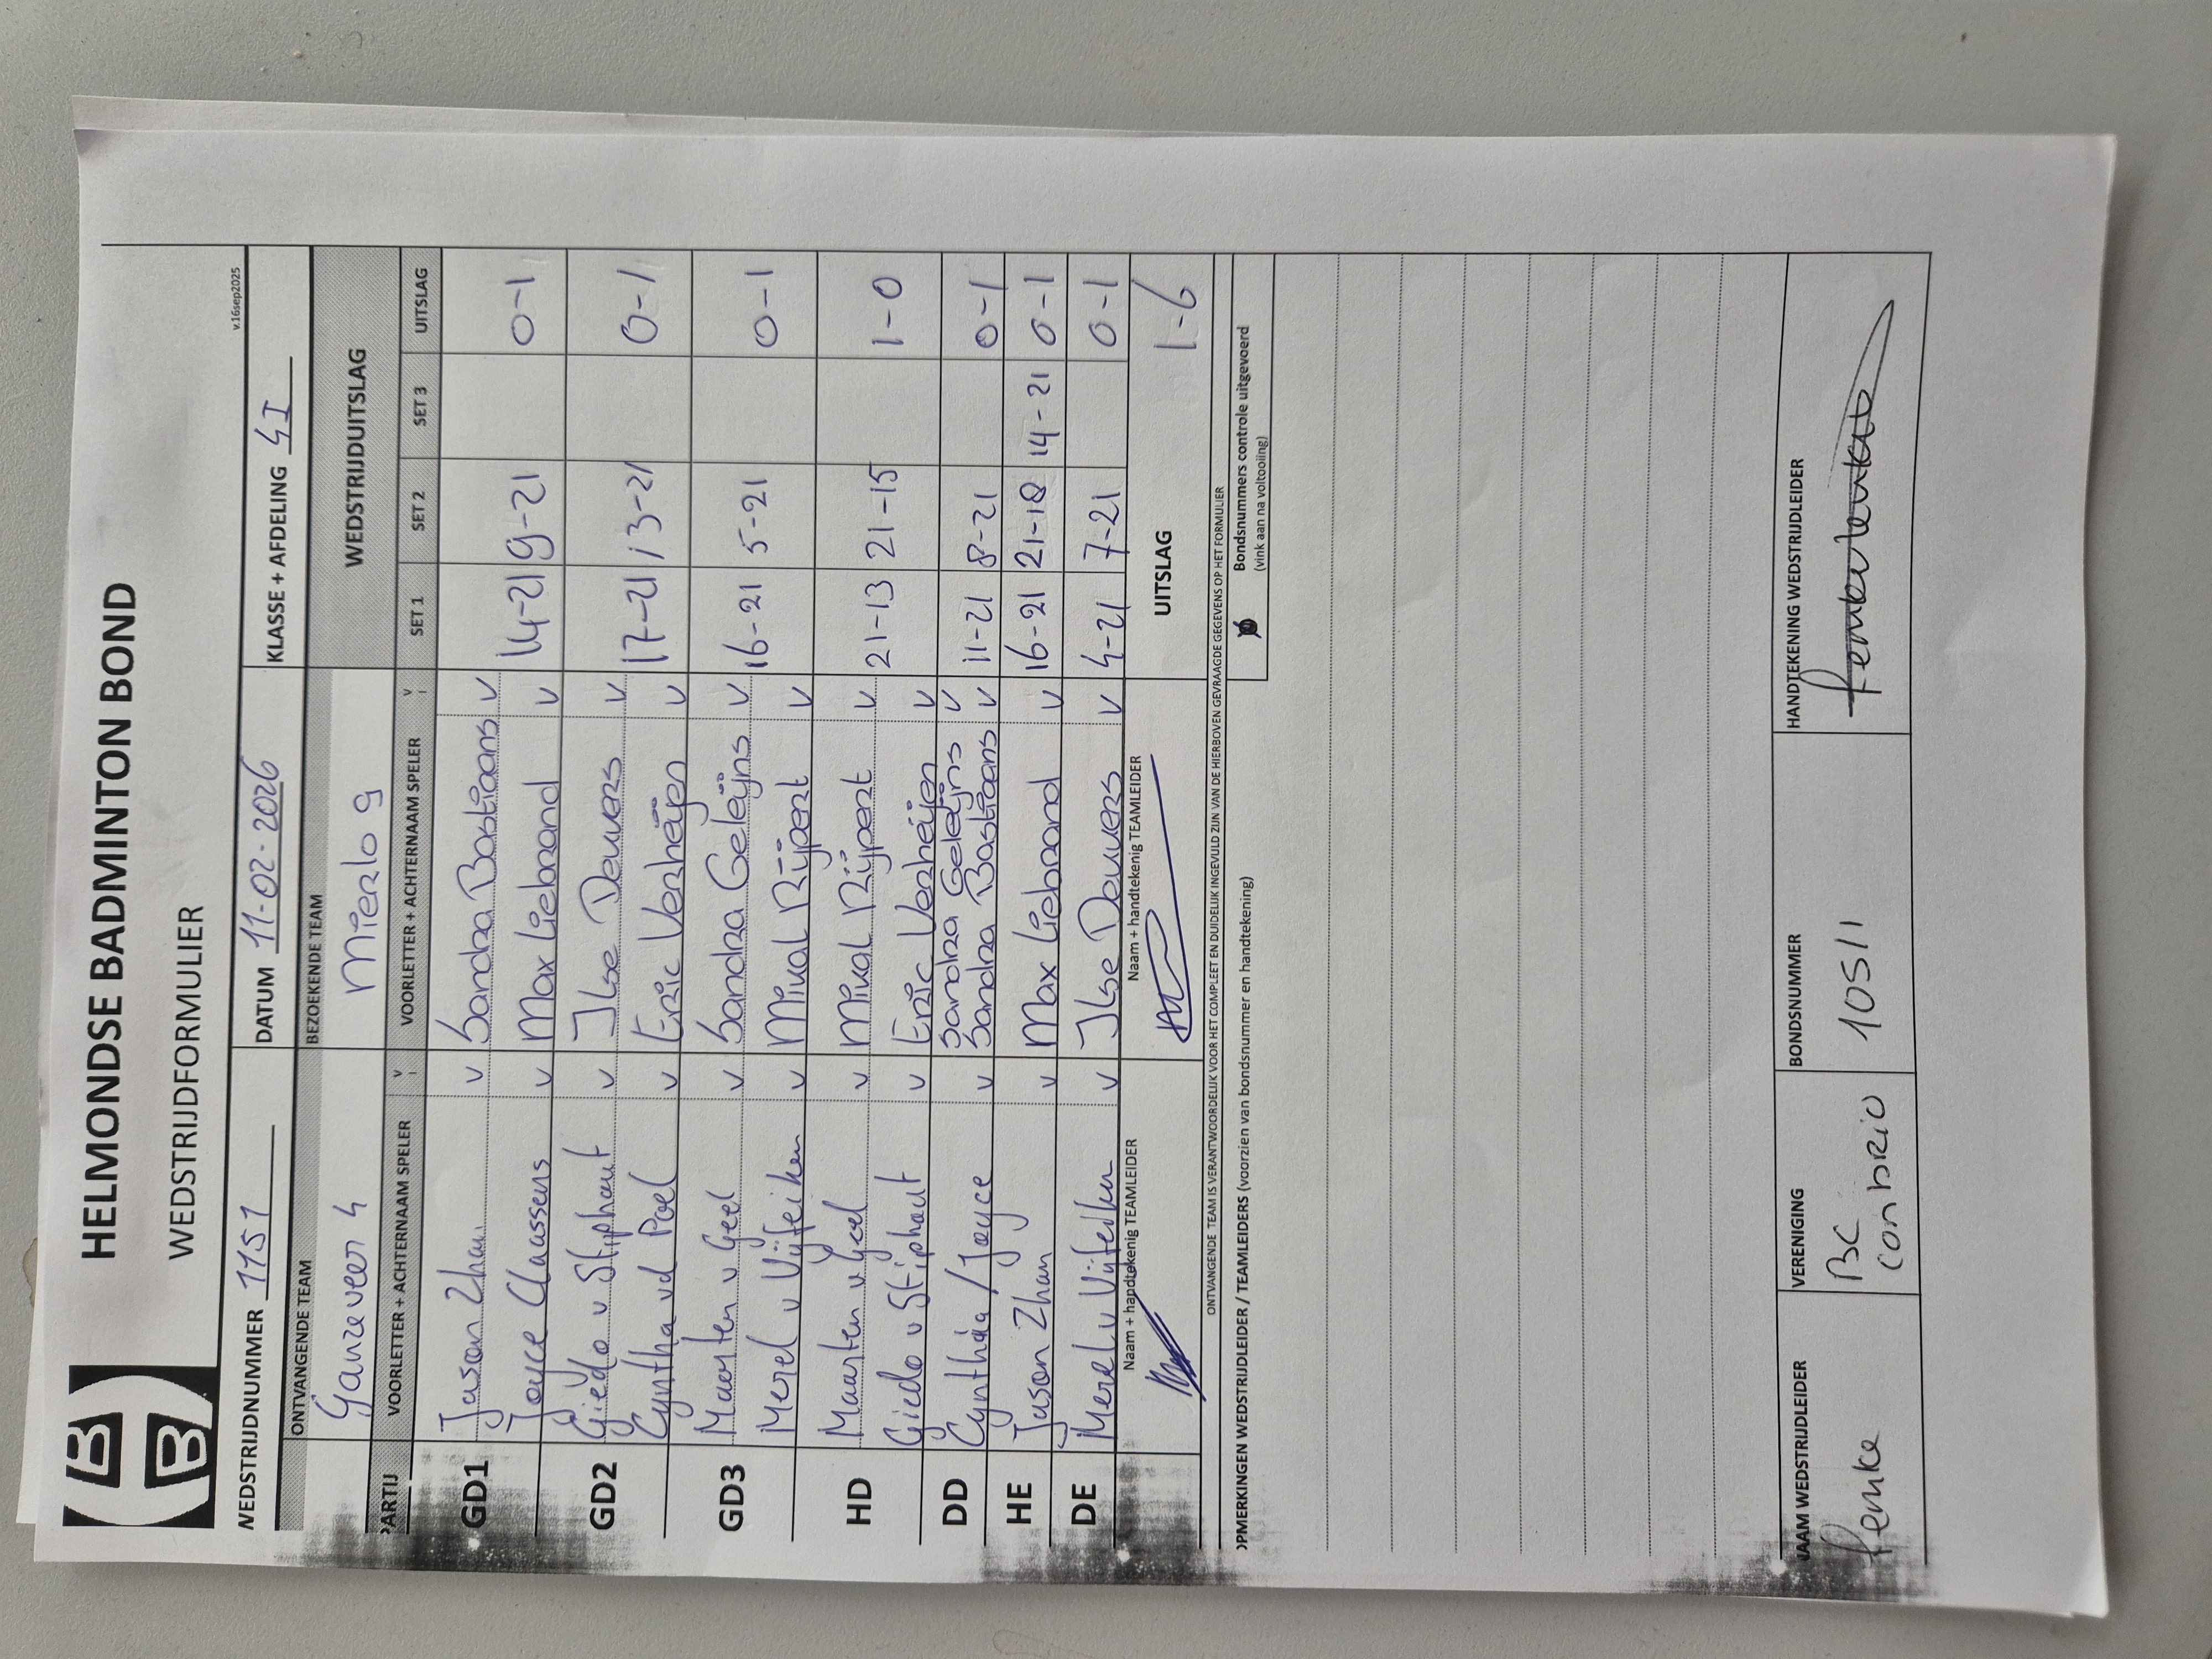 HELMONDSE BADMINTON BOND
WEDSTRIJDFORMULIER
v.16sep2025
WEDSTRIJDNUMMER 1151 DATUM 11-02-2026 KLASSE + AFDELING 4I
ONTVANGENDE TEAM BEZOEKENDE TEAM WEDSTRIJDUITSLAG
Ganzeveer 4 Mierlo 9
PARTIJ VOORLETTER + ACHTERNAAM SPELER V VOORLETTER + ACHTERNAAM SPELER V SET 1 SET 2 SET 3 UITSLAG
GD1 Jason Zhan v Sandra Bastiaans v
Joyce Claassens v Max Liebrand v 14-21 9-21 0-1
GD2 Giedo v Stiphout v Ilse Deuvers v
Cyntha vd Poel v Eric Verheijen v 17-21 13-21 0-1
GD3 Maarten v Geel v Sandra Geleijns v 16-21 5-21 0-1
Merel v Vijfeiken v Mixal Rijpert v
HD Maarten v Geel v Mixal Rijpert v 21-13 21-15 1-0
Giedo v Stiphout v Eric Verheijen v
DD Cynthia / Joyce v Sandra Geleijns v 11-21 8-21 0-1
Sandra Bastiaans v
HE Jason Zhan v Max Liebrand v 16-21 21-18 14-21 0-1
DE Merel v Vijfeiken v Ilse Deuvers v 4-21 7-21 0-1
Naam + handtekenig TEAMLEIDER Naam + handtekenig TEAMLEIDER UITSLAG 1-6
ONTVANGENDE TEAM IS VERANTWOORDELIJK VOOR HET COMPLEET EN DUIDELIJK INGEVULD ZIJN VAN DE HIERBOVEN GEVRAAGDE GEGEVENS OP HET FORMULIER
OPMERKINGEN WEDSTRIJDLEIDER / TEAMLEIDERS (voorzien van bondsnummer en handtekening) Bondsnummers controle uitgevoerd
(vink aan na voltooiing)
NAAM WEDSTRIJDLEIDER VERENIGING BONDSNUMMER HANDTEKENING WEDSTRIJDLEIDER
Femke BC 10511
con brio